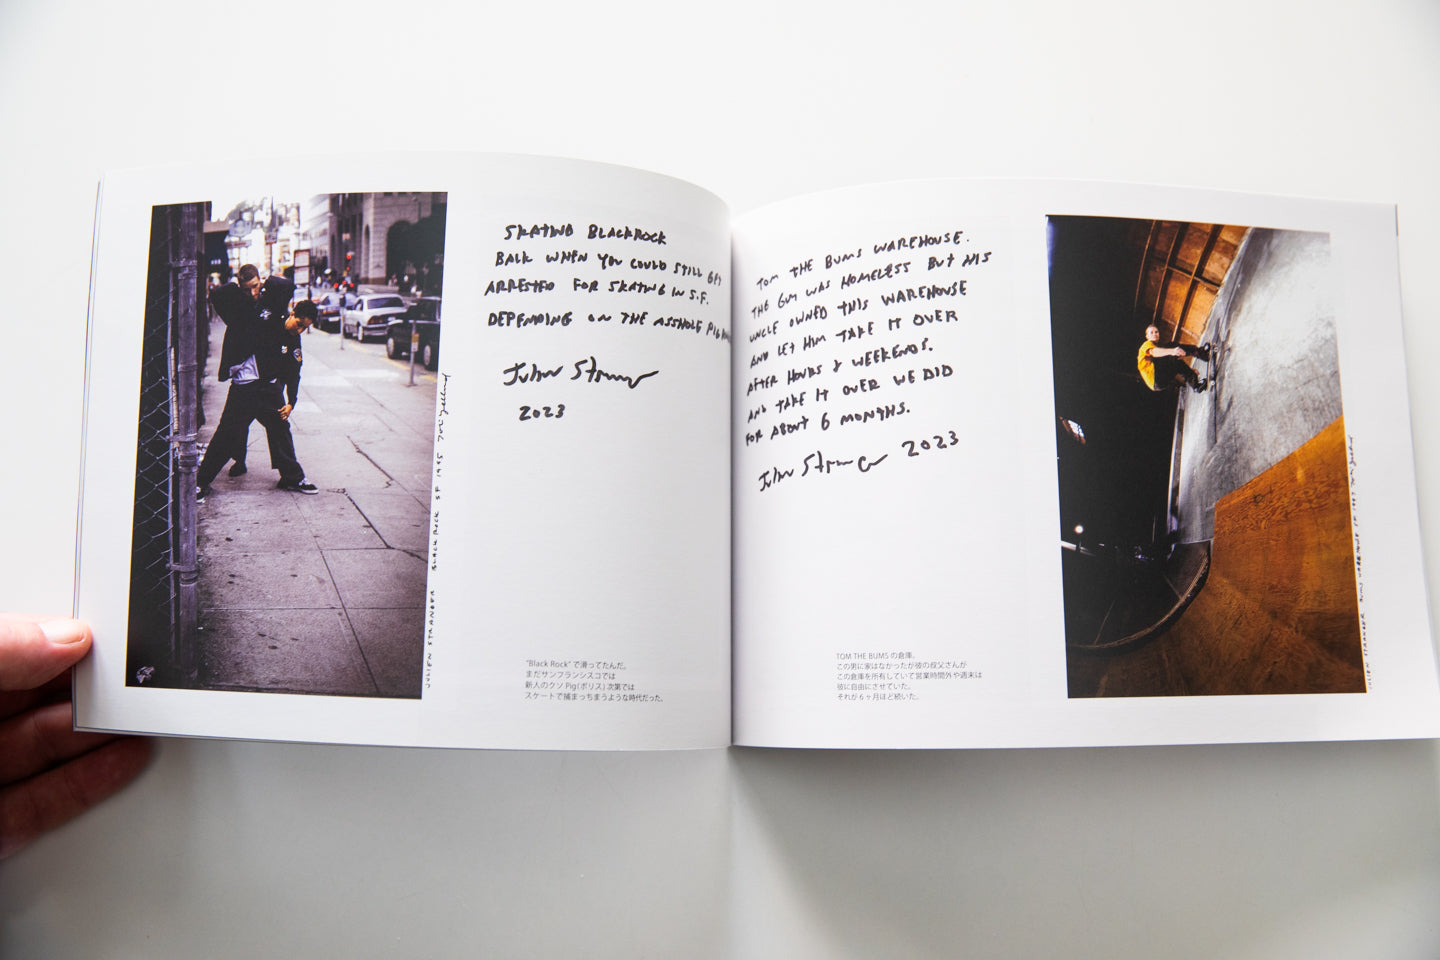 SKATING BLACKROCK
BACK WHEN YOU COULD STILL GET
ARRESTED FOR SKATING IN S.F.
DEPENDING ON THE ASSHOLE PIG
2023
JULIEN STRANGER BLACK ROCK SF 1995
"Black Rock" で滑ってたんだ。
まだサンフランシスコでは
新人のクソ Pig(ポリス) 次第では
スケートで捕まっちまうような時代だった。
TOM THE BUMS WAREHOUSE.
THE GUY WAS HOMELESS BUT HIS
UNCLE OWNED THIS WAREHOUSE
AND LET HIM TAKE IT OVER
AFTER HOURS & WEEKENDS.
AND TAKE IT OVER WE DID
FOR ABOUT 6 MONTHS.
2023
TOM THE BUMS の倉庫。
この男に家はなかったが彼の叔父さんが
この倉庫を所有していて営業時間外や週末は
彼に自由にさせていた。
それが 6 ヶ月ほど続いた。
JULIEN STRANGER BUMS WAREHOUSE SF